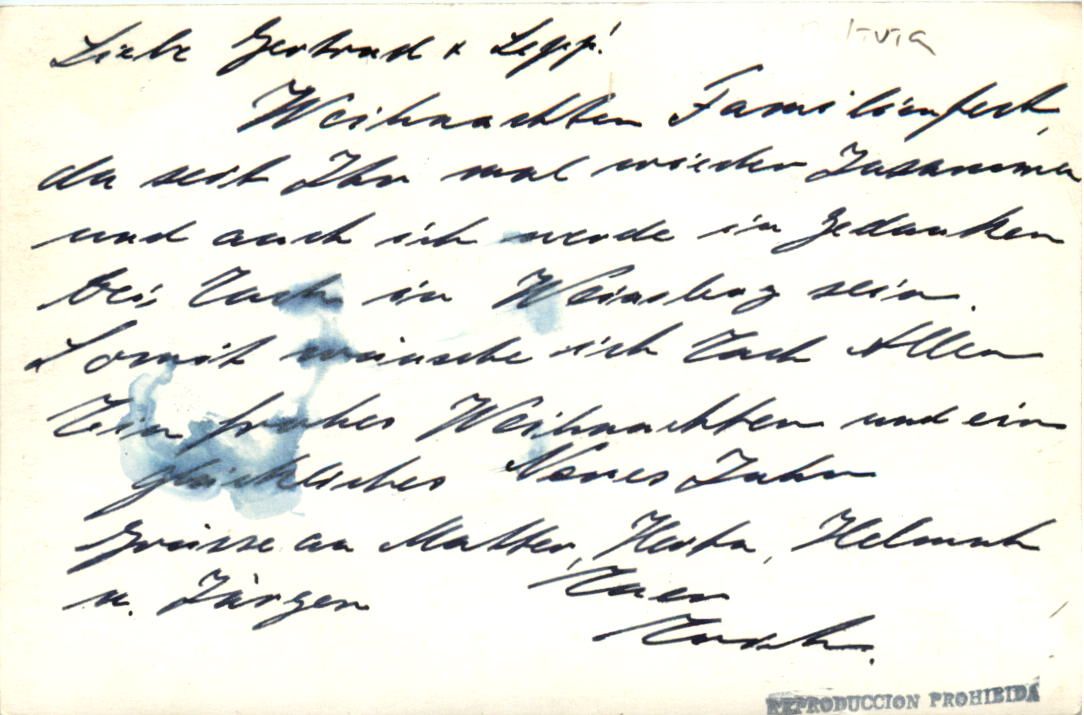 Liebe Gertrud & Sepp!
Weihnachten Familienfest,
da seit Ihr mal wieder Zusammen
und auch ich werde in Gedanken
bei Euch in Weinsberg sein.
Somit wünsche ich Euch Allen
Ein frohes Weihnachten und ein
glückliches Neues Jahr
Grüsse an Mutter, Herta, Helmut
u. Jürgen Euer
REPRODUCCION PROHIBIDA